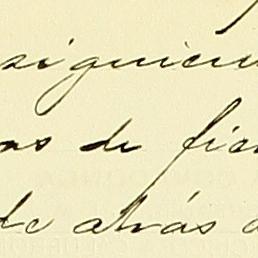 siguien
os de fie
de atrás a